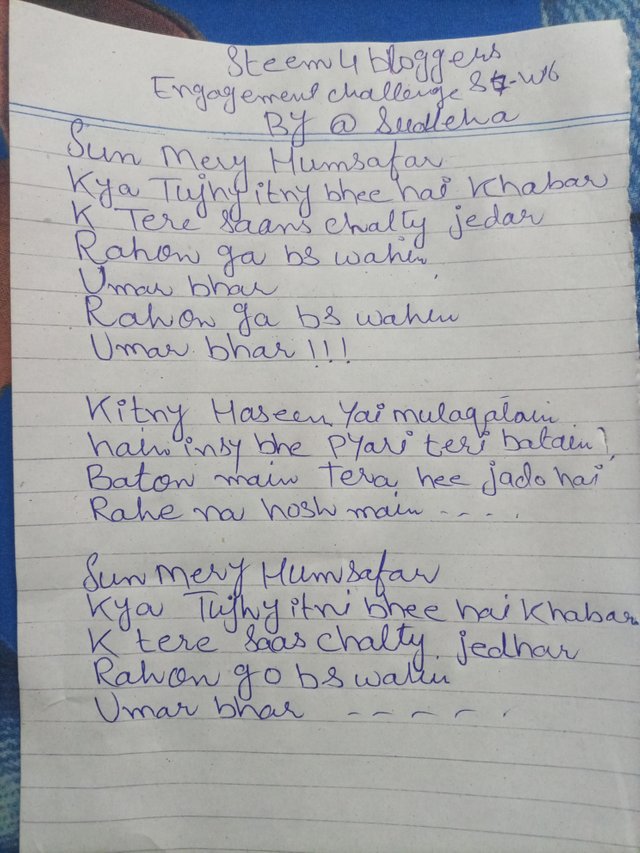 Steem 4 bloggers
Engagement challenge S7-W6
BY @ Sudleha
Sun Mery Humsafar
Kya Tujhy itny bhee hai Khabar
K Tere saans chalty jedar
Rahon ga bs wahin
Umar bhar
Rahon ga bs wahin
Umar bhar!!!
Kitny Haseen Yai mulaqatain
hain insy bhe Pyari teri batain
Baton main Tera hee jado hai
Rahe na hosh main ----.
Sun Mery Humsafar
Kya Tujhy itni bhee hai Khabar
K tere saas chalty jedhar
Rahon go bs wahin
Umar bhar -----